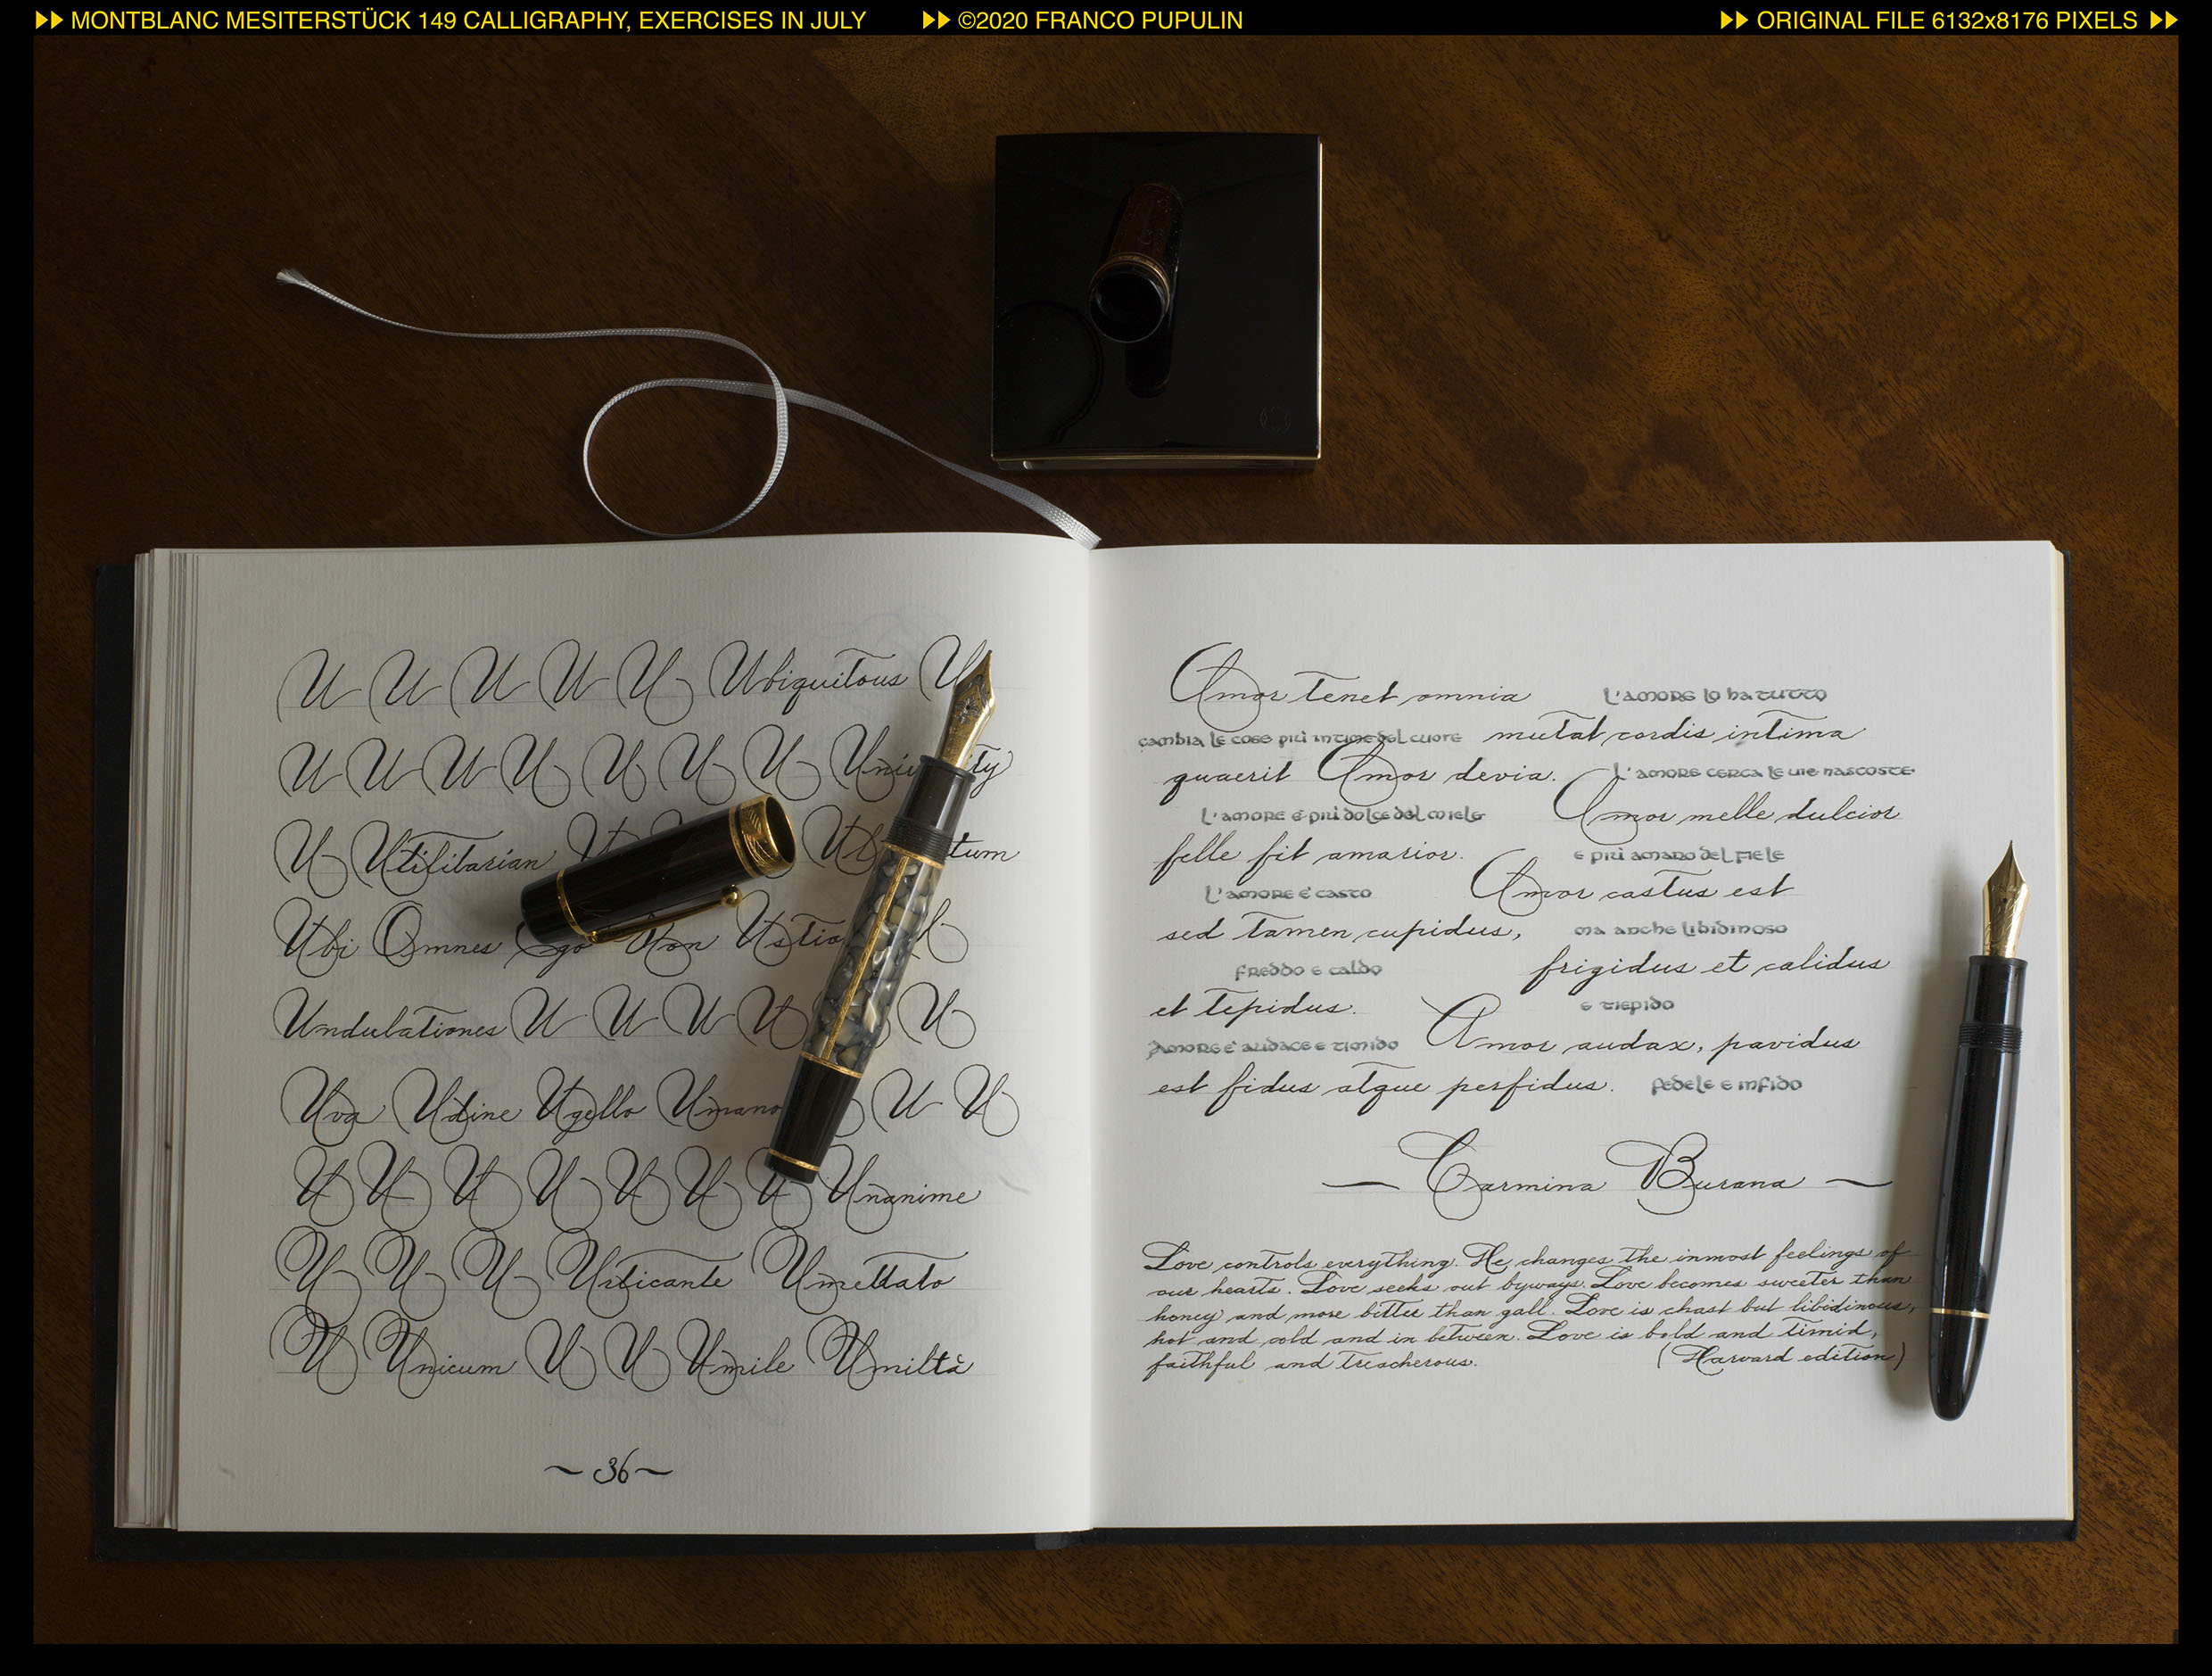 MONTBLANC MESITERSTÜCK 149 CALLIGRAPHY, EXERCISES IN JULY ©2020 FRANCO PUPULIN ORIGINAL FILE 6132x8176 PIXELS
U U U U U Ubiquitous U
U U U U U U U
U Utilitarian
Ubi Omnes Ego Non
Undulationes U U U U U
Uva Udine Ugello Umano U U
U U U U U U U Unanime
U U U Urticante Umettato
U Unicum U U Umile Umiltà
~ 36 ~
Amor tenet omnia L'amore lo ha tutto
cambia le cose più intime del cuore mutat cordis intima
quaerit Amor devia. L'amore cerca le vie nascoste
L'amore è più dolce del miele Amor melle dulcior
felle fit amarior. e più amaro del fiele
L'amore è casto Amor castus est
sed tamen cupidus, ma anche libidinoso
freddo e caldo frigidus et calidus
et tepidus. e tiepido
Amore è audace e timido Amor audax, pavidus
est fidus atque perfidus. fedele e infido
— Carmina Burana —
Love controls everything. He changes the inmost feelings of
our hearts. Love seeks out byways. Love becomes sweeter than
honey and more bitter than gall. Love is chast but libidinous,
hot and cold and in between. Love is bold and timid,
faithful and treacherous. (Harvard edition)